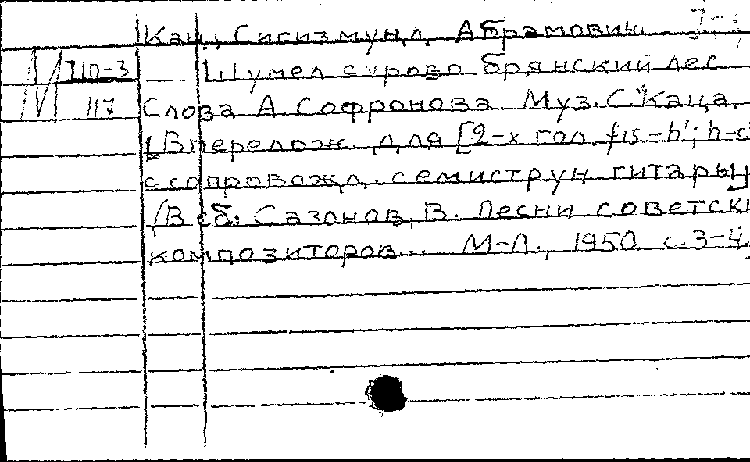 Кац, Сигизмунд Абрамович.
М 710-3
117
— Шумел сурово брянский лес
Слова А. Софронова. Муз. С. Каца.
[В перелож. для [2-х гол. fis-h'; h-
с сопровожд. семиструн гитары
/В сб: Сазонов, В. Песни советски
композиторов... М-Л., 1950 с. 3-4.